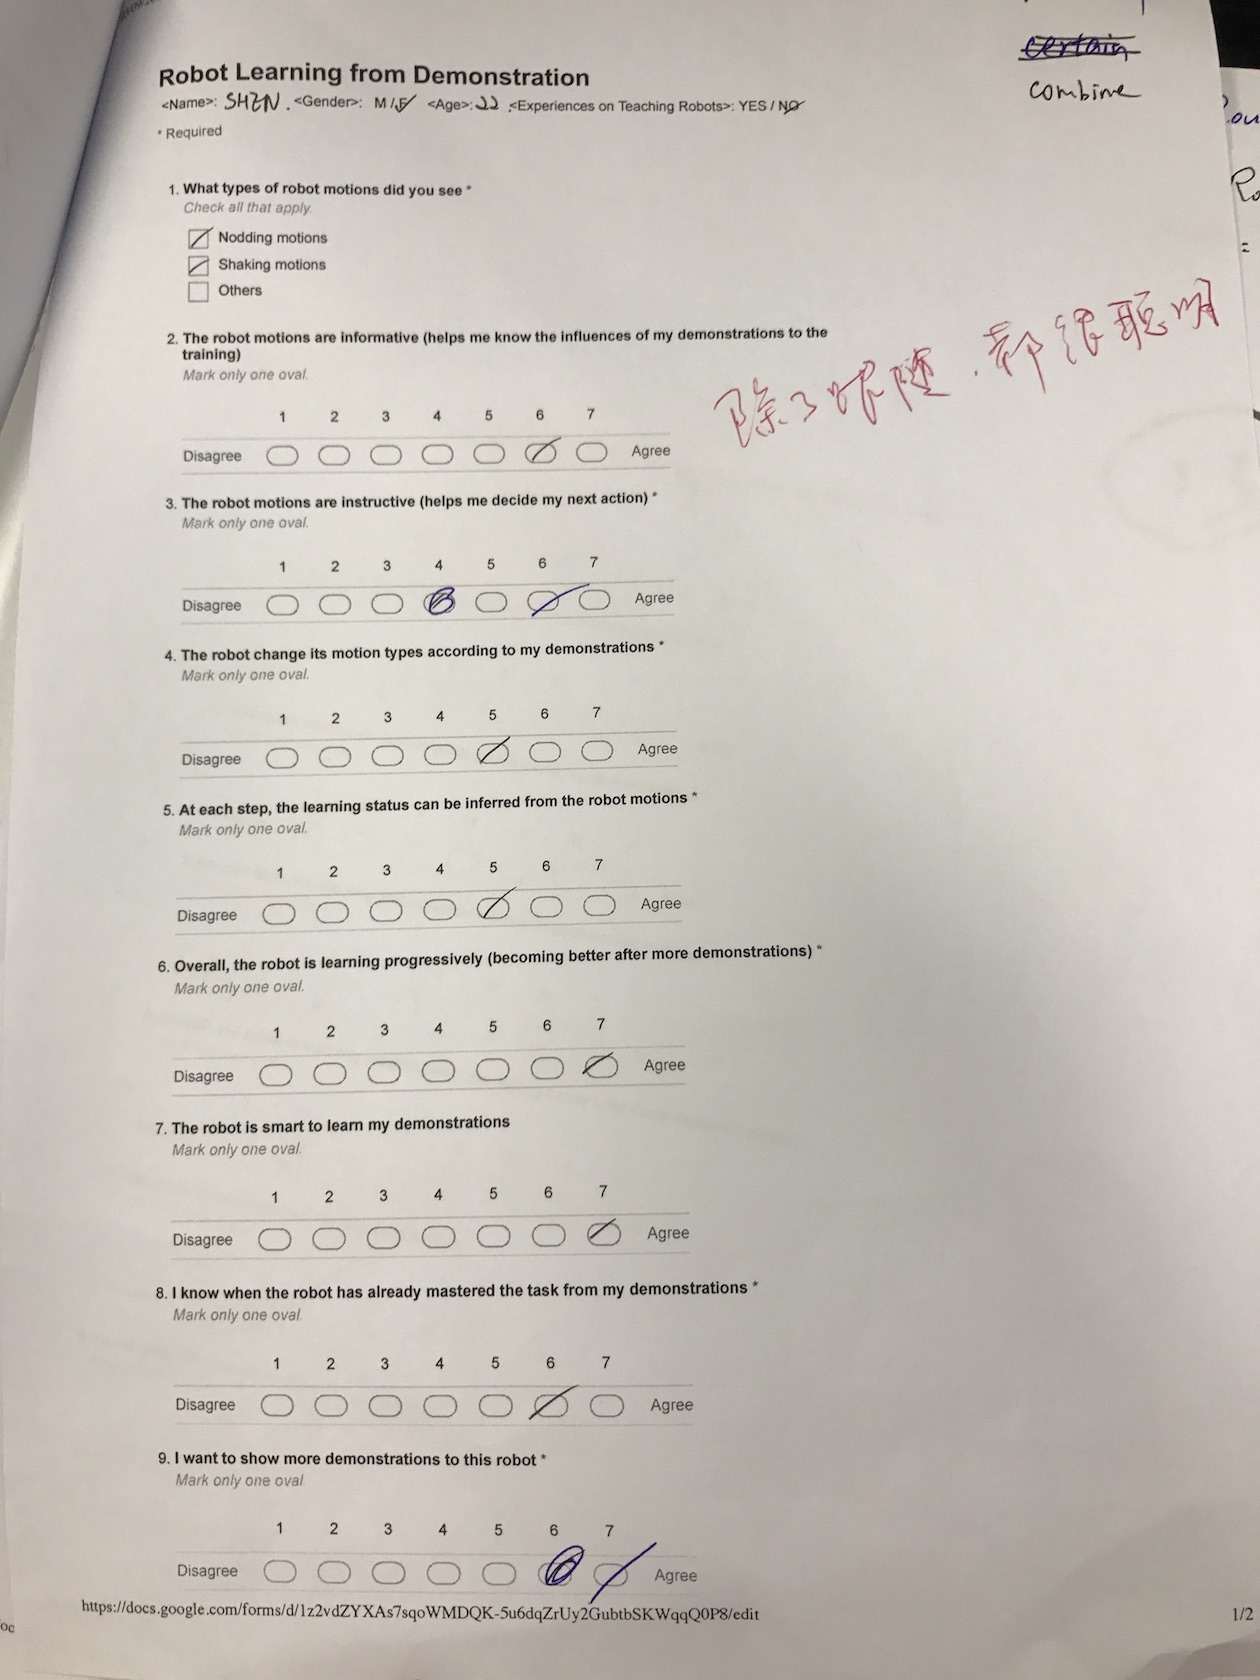 certain
combine
Robot Learning from Demonstration
<Name>: SHEN. <Gender>: M / F <Age>: 22 <Experiences on Teaching Robots>: YES / NO
* Required
1. What types of robot motions did you see *
Check all that apply.
Nodding motions
Shaking motions
Others
2. The robot motions are informative (helps me know the influences of my demonstrations to the
training)
Mark only one oval.
1 2 3 4 5 6 7
Disagree Agree
除了 都很聪明
3. The robot motions are instructive (helps me decide my next action) *
Mark only one oval.
1 2 3 4 5 6 7
Disagree Agree
4. The robot change its motion types according to my demonstrations *
Mark only one oval.
1 2 3 4 5 6 7
Disagree Agree
5. At each step, the learning status can be inferred from the robot motions *
Mark only one oval.
1 2 3 4 5 6 7
Disagree Agree
6. Overall, the robot is learning progressively (becoming better after more demonstrations) *
Mark only one oval.
1 2 3 4 5 6 7
Disagree Agree
7. The robot is smart to learn my demonstrations
Mark only one oval.
1 2 3 4 5 6 7
Disagree Agree
8. I know when the robot has already mastered the task from my demonstrations *
Mark only one oval.
1 2 3 4 5 6 7
Disagree Agree
9. I want to show more demonstrations to this robot *
Mark only one oval.
1 2 3 4 5 6 7
Disagree Agree
https://docs.google.com/forms/d/1z2vdZYXAs7sqoWMDQK-5u6dqZrUy2GubtbSKWqqQ0P8/edit
1/2